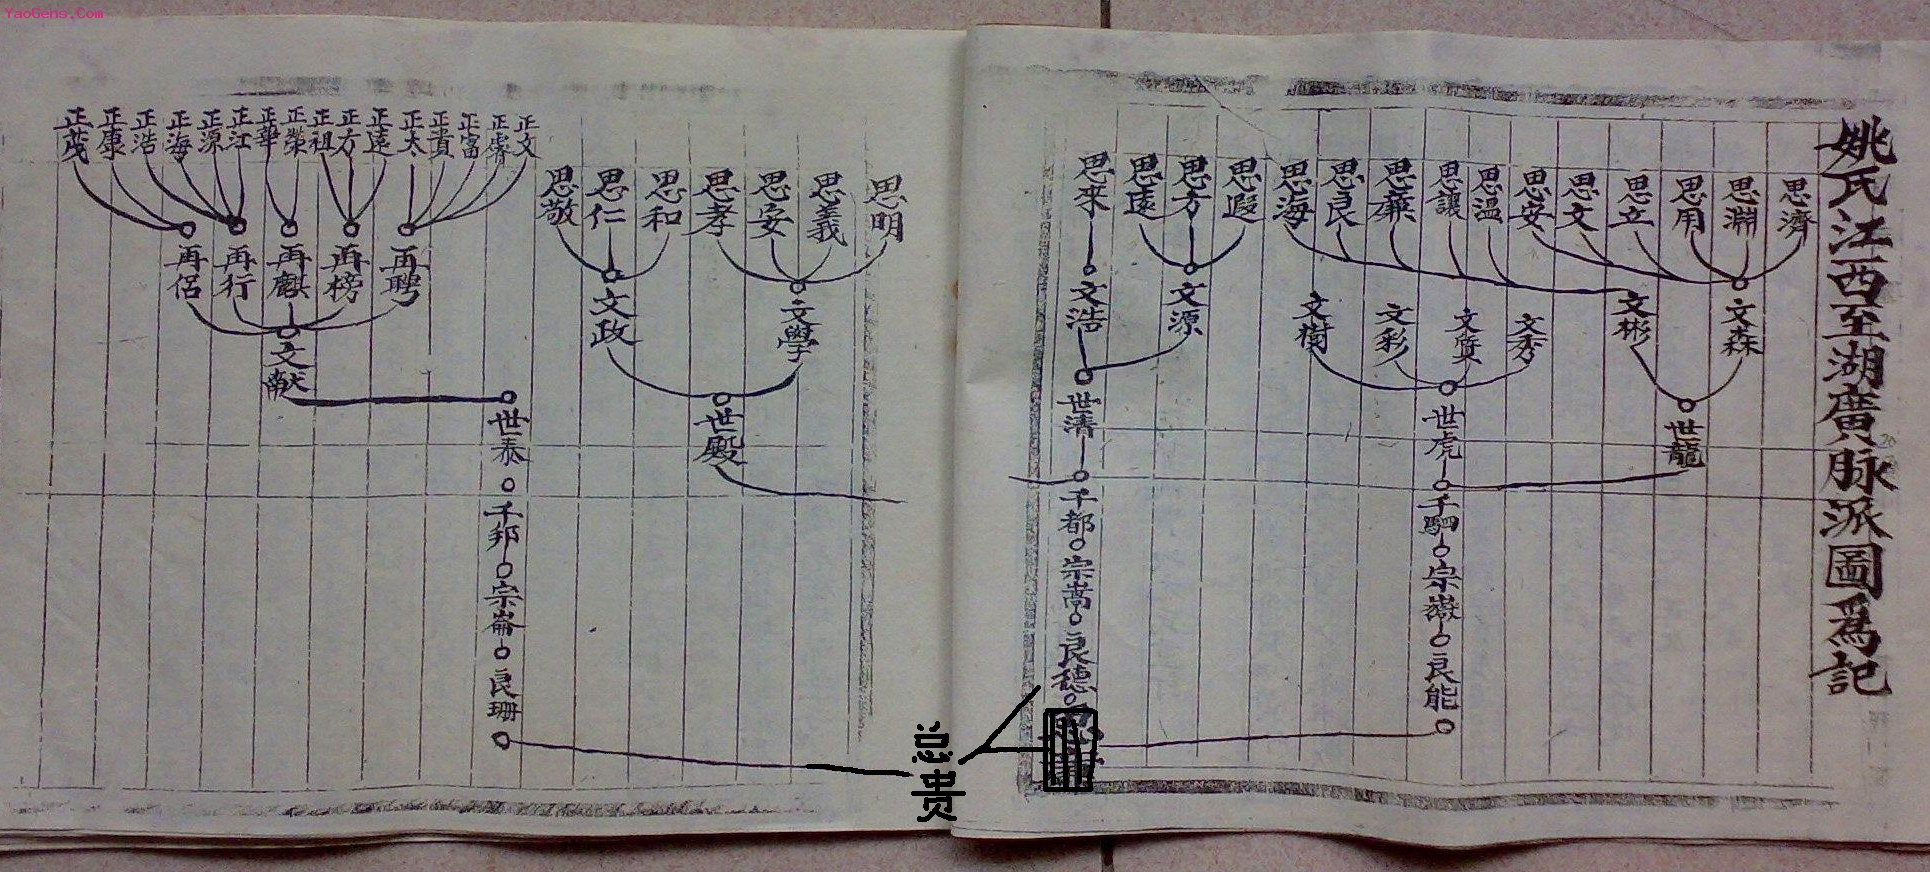 YaoGens.Com
姚氏江西至湖廣脉派圖爲記
思濟
思淵
思用
思立
思文
思安
思溫
思讓
思廉
思良
思海
思遐
思方
思遠
思來
文森
文彬
文秀
文質
文彩
文樹
文源
文浩
世龍
世虎
世清
千駟
千都
宗嶽
宗嵩
良能
良德
总贵
思明
思義
思安
思孝
思和
思仁
思敬
文學
文政
世殿
正文
正睿
正富
正貴
正太
正遠
正方
正祖
正榮
正華
正江
正源
正海
正浩
正康
正茂
再聘
再榜
再麒
再行
再侶
文献
世泰
千邦
宗崙
良珊